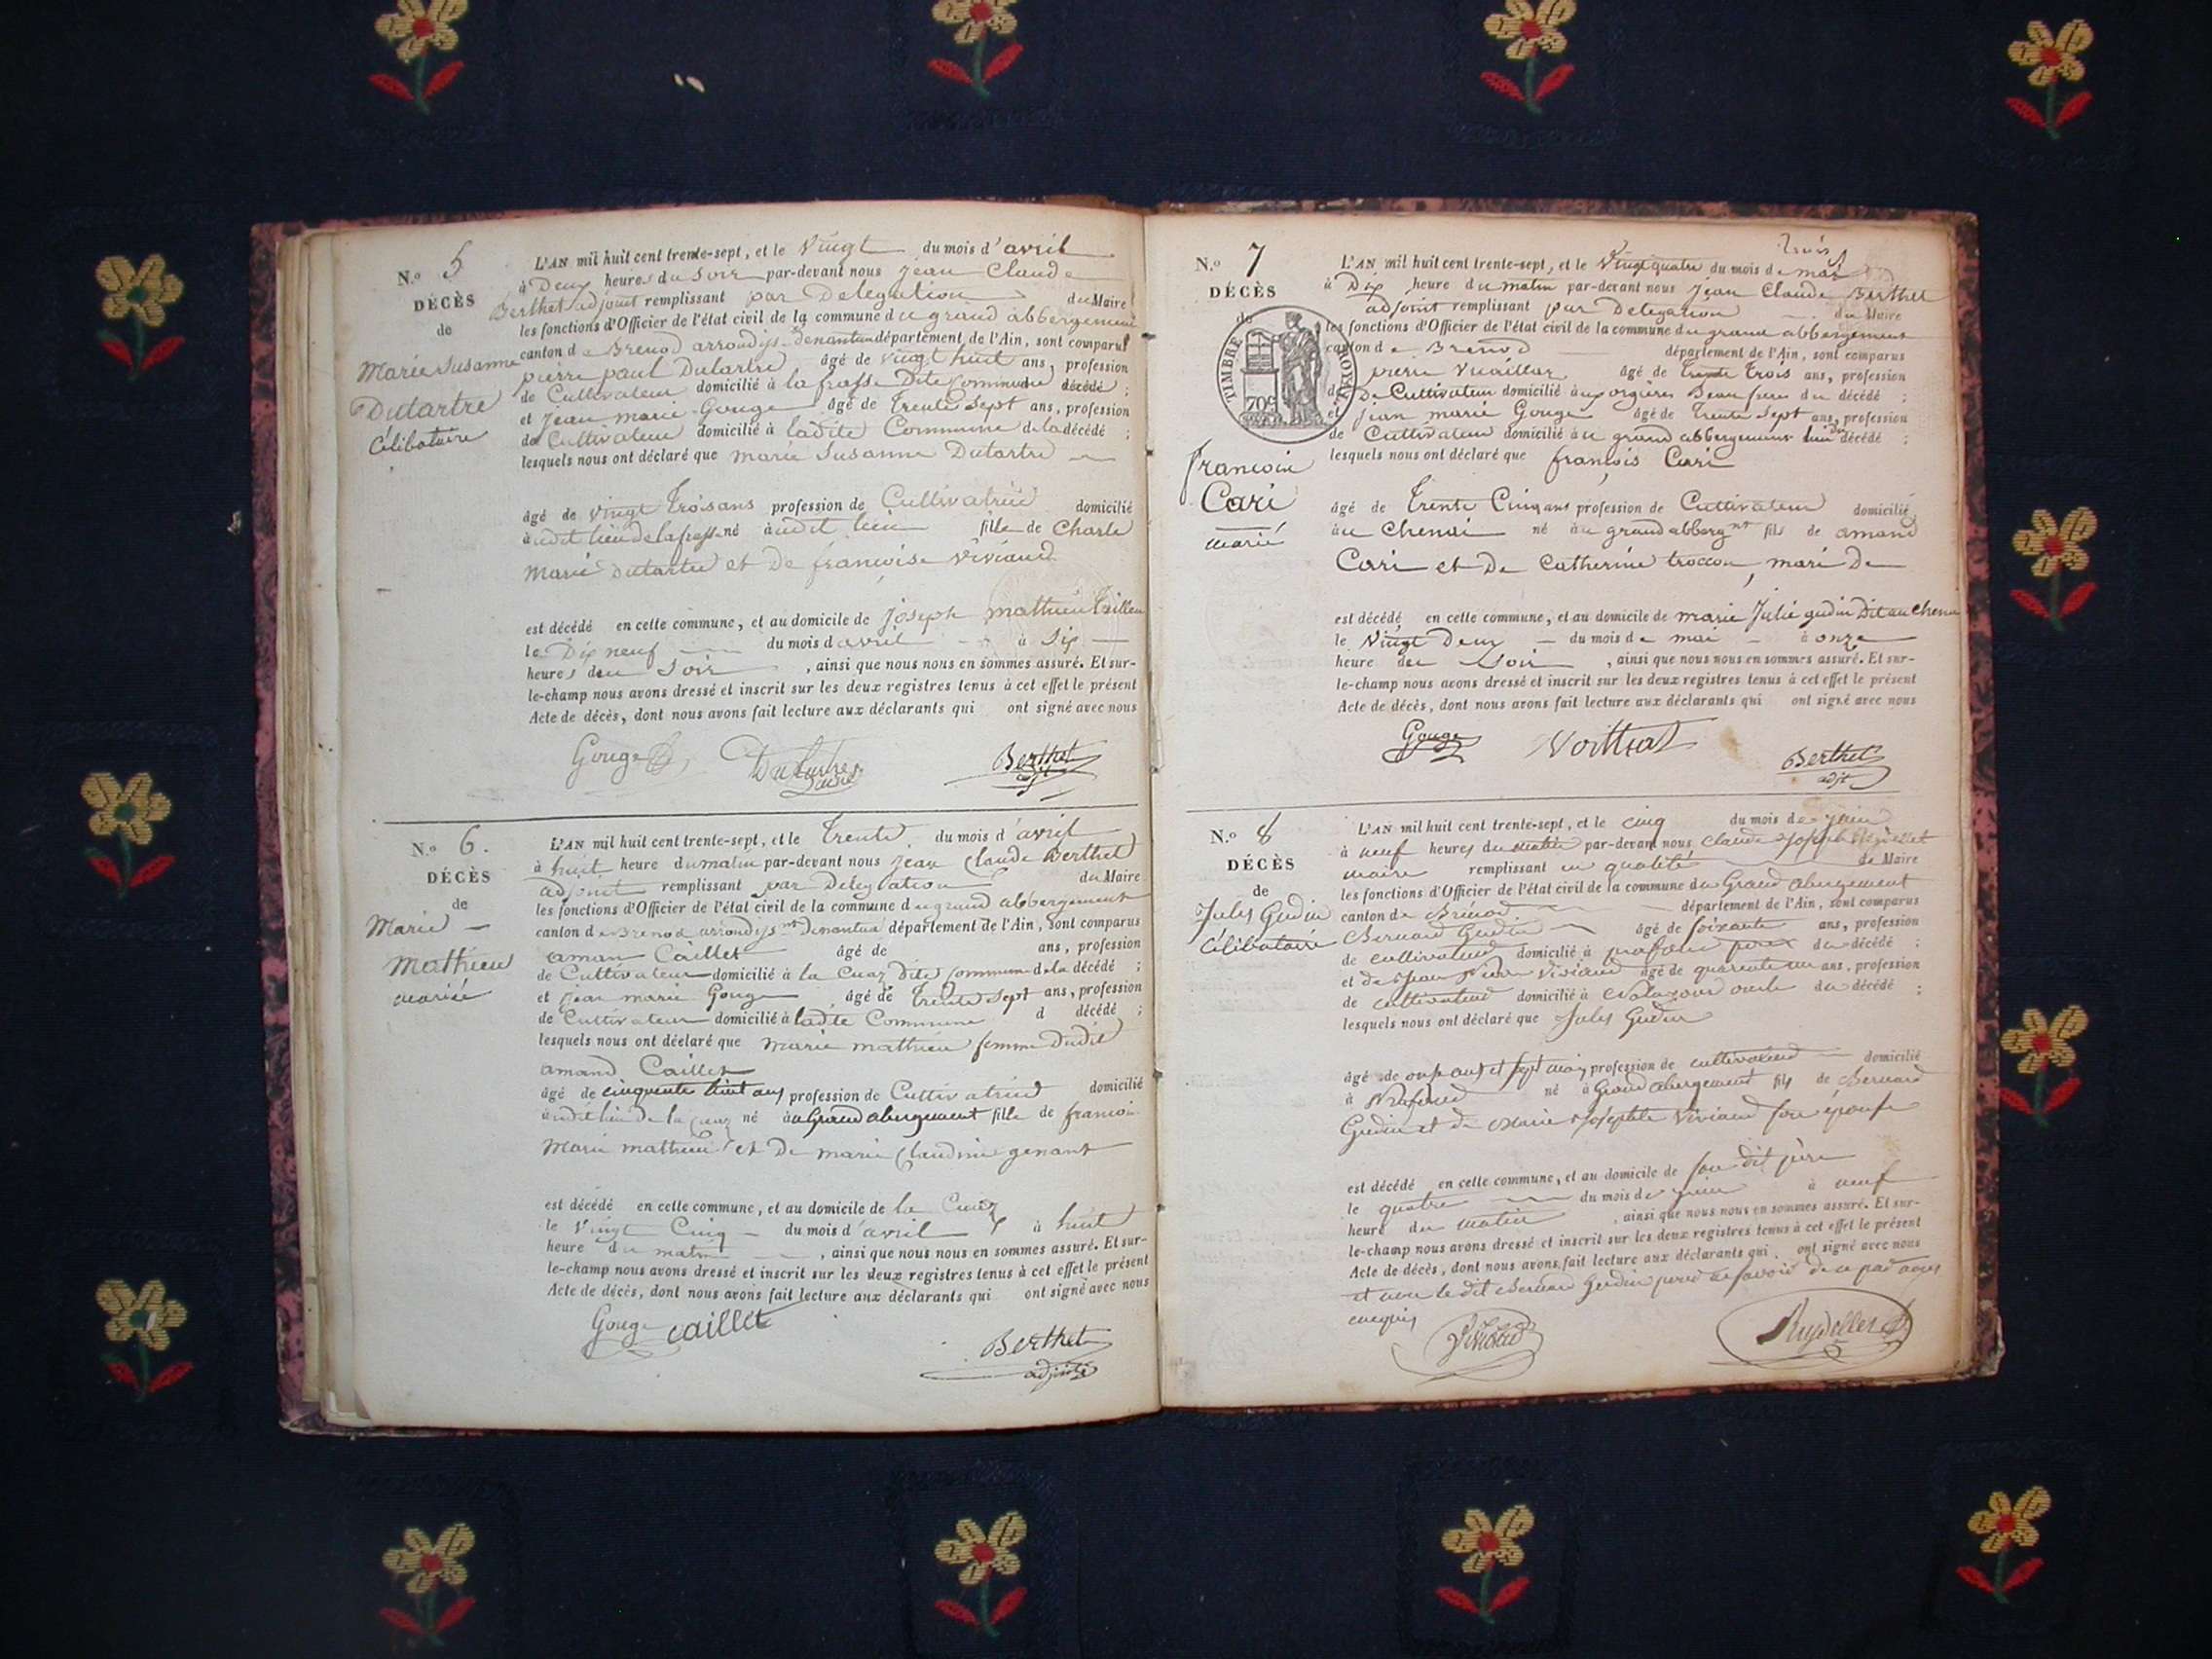 N.º 5
DÉCÈS
de
Marie Susanne
Dutartre
Célibataire
L'AN mil huit cent trente-sept, et le Vingt du mois d'avril
à Deux heures du Soir par-devant nous jean Claude
Berthet adjoint remplissant par Delegation du Maire
les fonctions d'Officier de l'état civil de la commune du grand abbergement
canton de Brenod arrondis. denantua département de l'Ain, sont comparus
pierre paul Dutartre âgé de vingt huit ans, profession
de Cultivateur domicilié à la frasse Dite Commune décédé ;
et Jean marie Gouge âgé de Trente Sept ans, profession
de Cultivateur domicilié à ladite Commune de la décédé ;
lesquels nous ont déclaré que marie Susanne Dutartre
âgé de vingt Trois ans profession de Cultivatrice domicilié
audit lieu de lafrasse né audit lieu fille de Charle
Marie Dutartre et De françoise Viviand
est décédé en cette commune, et au domicile de joseph mathieu
le Dix neuf du mois d'avril à Six
heures du Soir , ainsi que nous nous en sommes assuré. Et sur-
le-champ nous avons dressé et inscrit sur les deux registres tenus à cet effet le présent
Acte de décès, dont nous avons fait lecture aux déclarants qui ont signé avec nous
Gouge Dutartre Berthet
adjt
N.º 6.
DÉCÈS
de
Marie
Mathieu
mariée
L'AN mil huit cent trente-sept, et le Trente du mois d'avril
à huit heure du matin par-devant nous jean Claude Berthet
adjoint remplissant par Delegation du Maire
les fonctions d'Officier de l'état civil de la commune du grand abbergement
canton de Brenod arrondis.nt Denantua département de l'Ain, sont comparus
aman Caillet âgé de ans, profession
de Cultivateur domicilié à la Cuaz Dite Commune de la décédé ;
et jean marie Gouge âgé de Trente Sept ans, profession
de Cultivateur domicilié à ladite Commune d décédé ;
lesquels nous ont déclaré que marie mathieu femme Dudit
amand Caillet
âgé de cinquante huit ans profession de Cultivatrice domicilié
audit lieu De la Cuaz né au Grand abergement fille de francois
Marie mathieu et De marie Claudine genant
est décédé en cette commune, et au domicile de la Cuaz
le Vingt Cinq du mois d'avril à huit
heure du matin , ainsi que nous nous en sommes assuré. Et sur-
le-champ nous avons dressé et inscrit sur les deux registres tenus à cet effet le présent
Acte de décès, dont nous avons fait lecture aux déclarants qui ont signé avec nous
Gouge caillet
Berthet
adjoint
N.º 7
DÉCÈS
de
TIMBRE ROYAL
70c
francois
Cari
marié
trois
L'AN mil huit cent trente-sept, et le Vingt quatre du mois de mai
à Dix heure du matin par-devant nous jean Claude Berthet
adjoint remplissant par Delegation du Maire
les fonctions d'Officier de l'état civil de la commune du grand abbergement
canton de Brenod département de l'Ain, sont comparus
pierre Vuaillat âgé de trente Trois ans, profession
de Cultivateur domicilié aux orgières Beau frere du décédé ;
et jean marie Gouge âgé de Trente Sept ans, profession
de Cultivateur domicilié au grand abbergement du décédé ;
lesquels nous ont déclaré que françois Cari
âgé de Trente Cinq ans profession de Cultivateur domicilié
au Chenai né au grand abberg.nt fils de amand
Cari et De Catherine troccon, mari De
est décédé en cette commune, et au domicile de marie Julie gudin Dit au Chenai
le Vingt Deux du mois de mai à onze
heure du Soir , ainsi que nous nous en sommes assuré. Et sur-
le-champ nous avons dressé et inscrit sur les deux registres tenus à cet effet le présent
Acte de décès, dont nous avons fait lecture aux déclarants qui ont signé avec nous
Gouge Berthet
adjt
N.º 8
DÉCÈS
de
Jules Gudin
Célibataire
L'AN mil huit cent trente-sept, et le cinq du mois de juin
à neuf heures du matin par-devant nous Claude Joseph
maire remplissant en qualité de Maire
les fonctions d'Officier de l'état civil de la commune du Grand abergement
canton de Brénod département de l'Ain, sont comparus
Bernard Gudin âgé de soixante ans, profession
de cultivateur domicilié à père du décédé ;
et de Jean Viviand âgé de quarante un ans, profession
de cultivateur domicilié à oncle du décédé ;
lesquels nous ont déclaré que Jules Gudin
âgé de onze ans et sept mois profession de cultivateur domicilié
à né à Grand abergement fils de Bernard
Gudin et de Marie Josephte Viviand son épouse
est décédé en cette commune, et au domicile de son dit père
le quatre du mois de juin à neuf
heure du matin , ainsi que nous nous en sommes assuré. Et sur-
le-champ nous avons dressé et inscrit sur les deux registres tenus à cet effet le présent
Acte de décès, dont nous avons fait lecture aux déclarants qui ont signé avec nous
et non le dit Bernard Gudin père ne savoir de ce par nous
enquis
Viviand